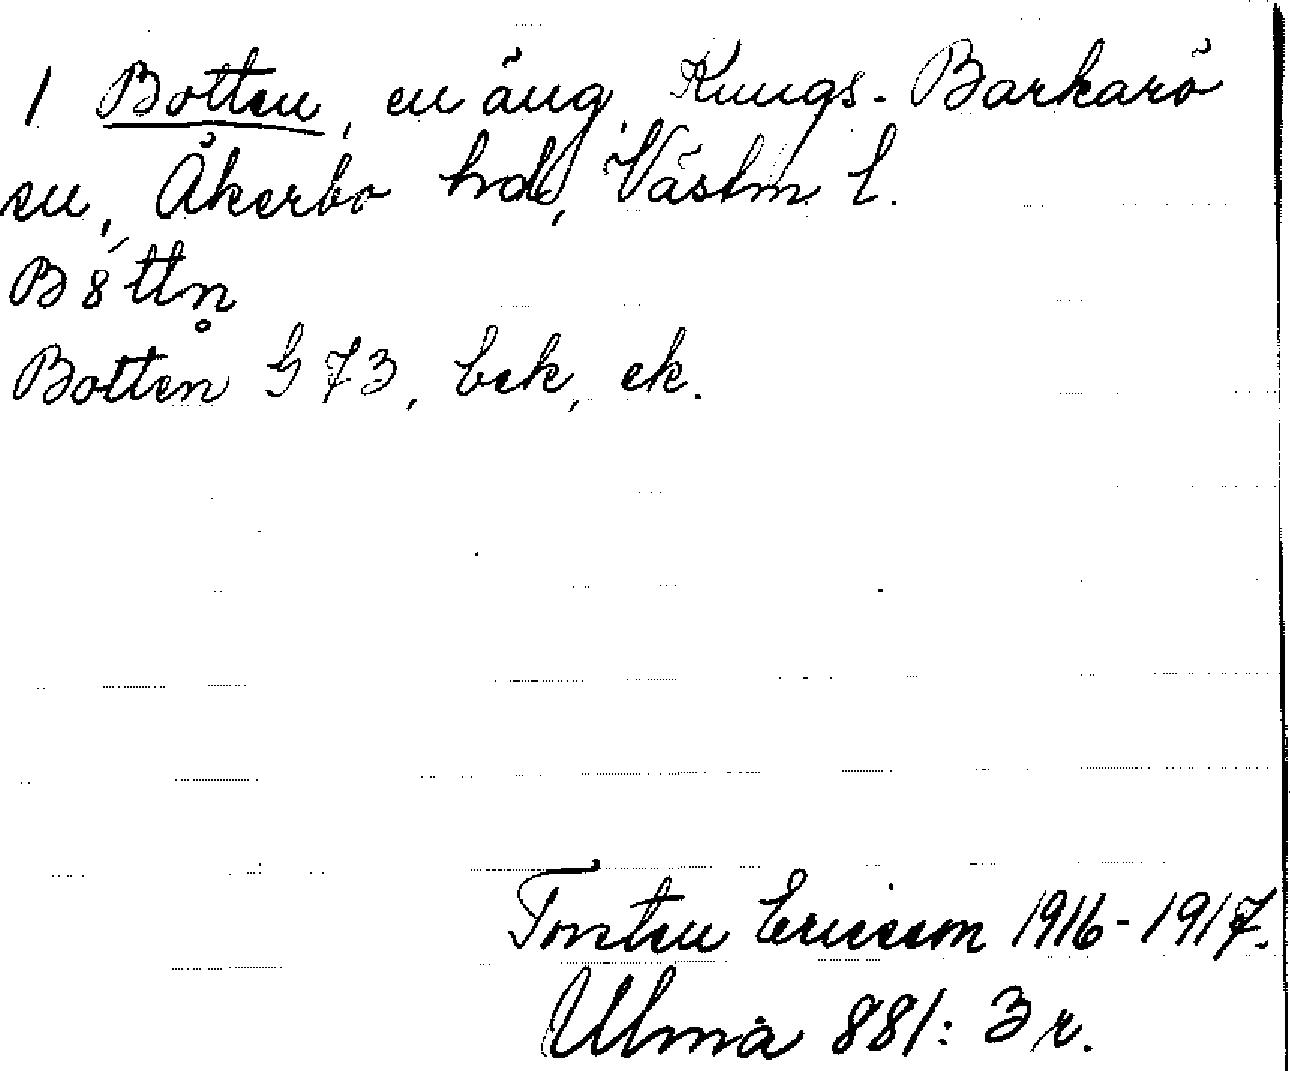 1 Botten, en äng, Kungs-Barkarö
sn, Åkerbo hd, Västm. l.
Botten G 73, bek, ek.
Torsten Ericsson 1916-1917.
Ulma 881: 3 r.